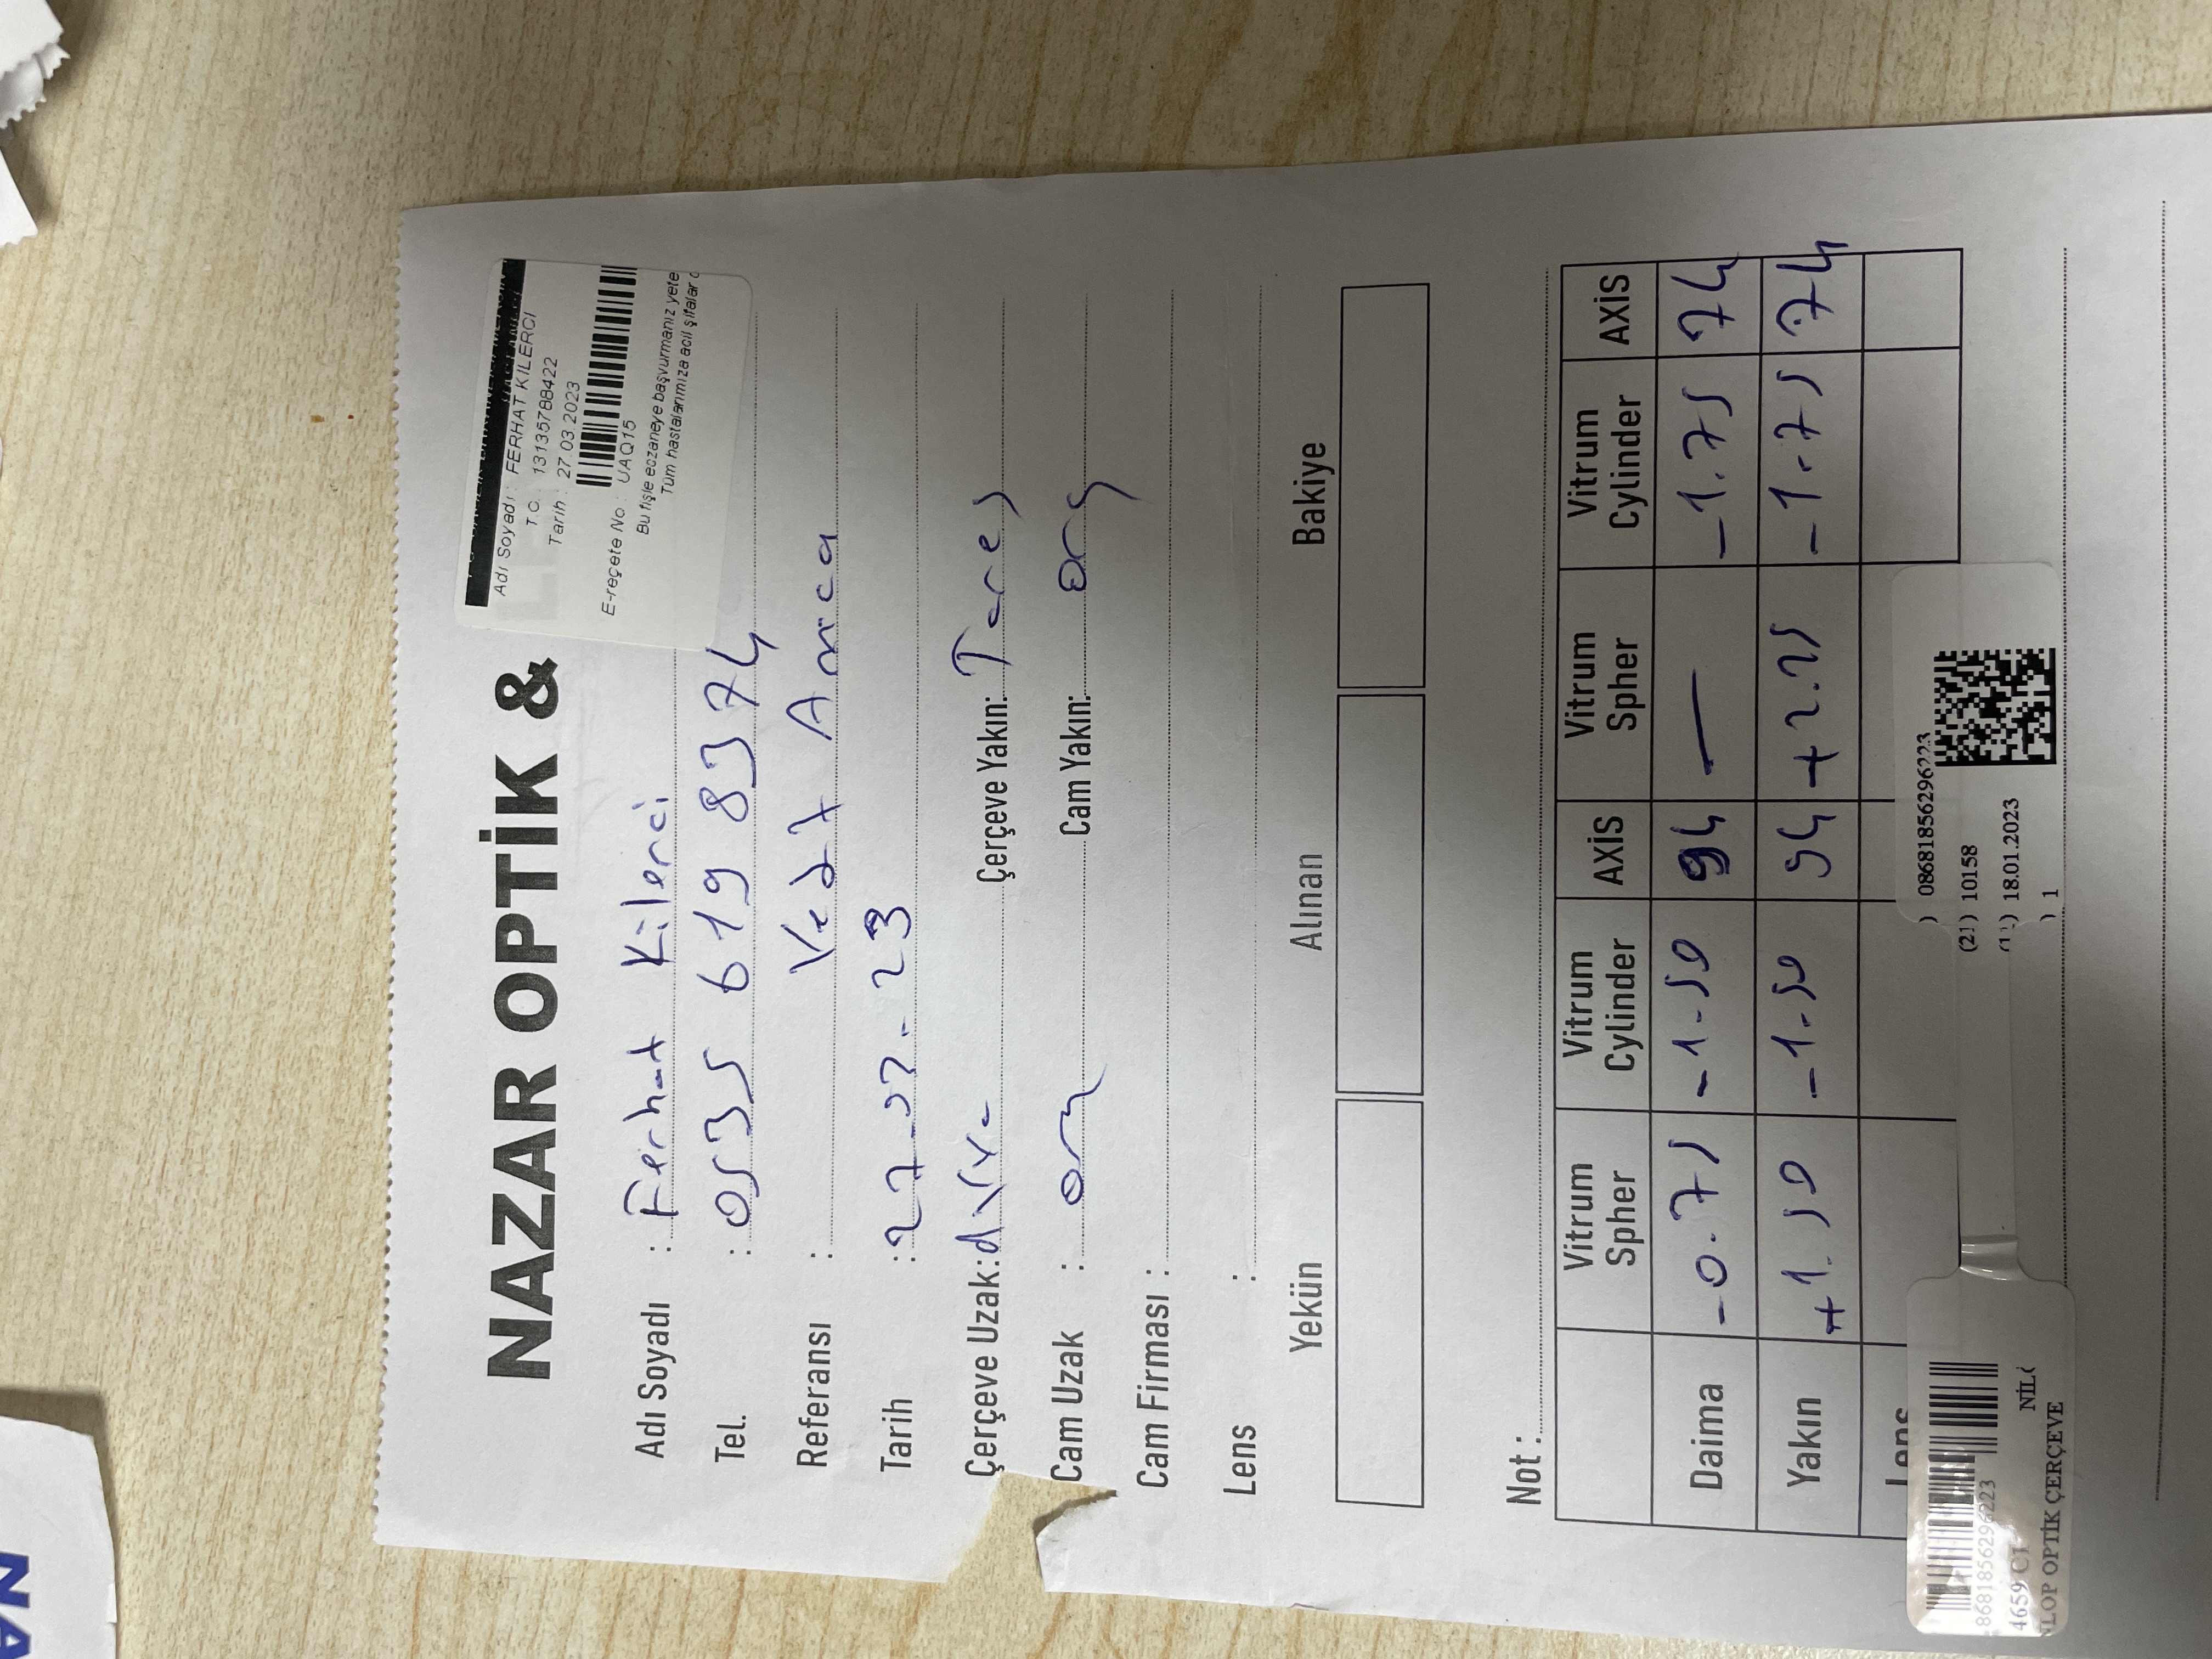 NA
NAZAR OPTİK &
Adı Soyadı : FERHAT KILERCI
T.C. : 13135788422
Tarih : 27.03.2023
E-reçete No : UAQ15
Bu fişle eczaneye başvurmanız yete
Tüm hastalarımıza acil şifalar d
Adı Soyadı : Ferhat Kilerci
Tel. : 0535 619 8374
Referansı : Amca
Tarih : 27-03-23
Çerçeve Uzak: Çerçeve Yakın:
Cam Uzak : org Cam Yakın: org
Cam Firması :
Lens :
Yekün Alınan Bakiye
Not :
Vitrum Spher Vitrum Cylinder AXİS Vitrum Spher Vitrum Cylinder AXİS
Daima -0.75 -1.50 94 — -1.75 74
Yakın +1.50 -1.50 94 +2.25 -1.75 74
Lens
8681856296223
4659 C1 NİL
NLOP OPTİK ÇERÇEVE
) 08681856296223
(21) 10158
(11) 18.01.2023
) 1